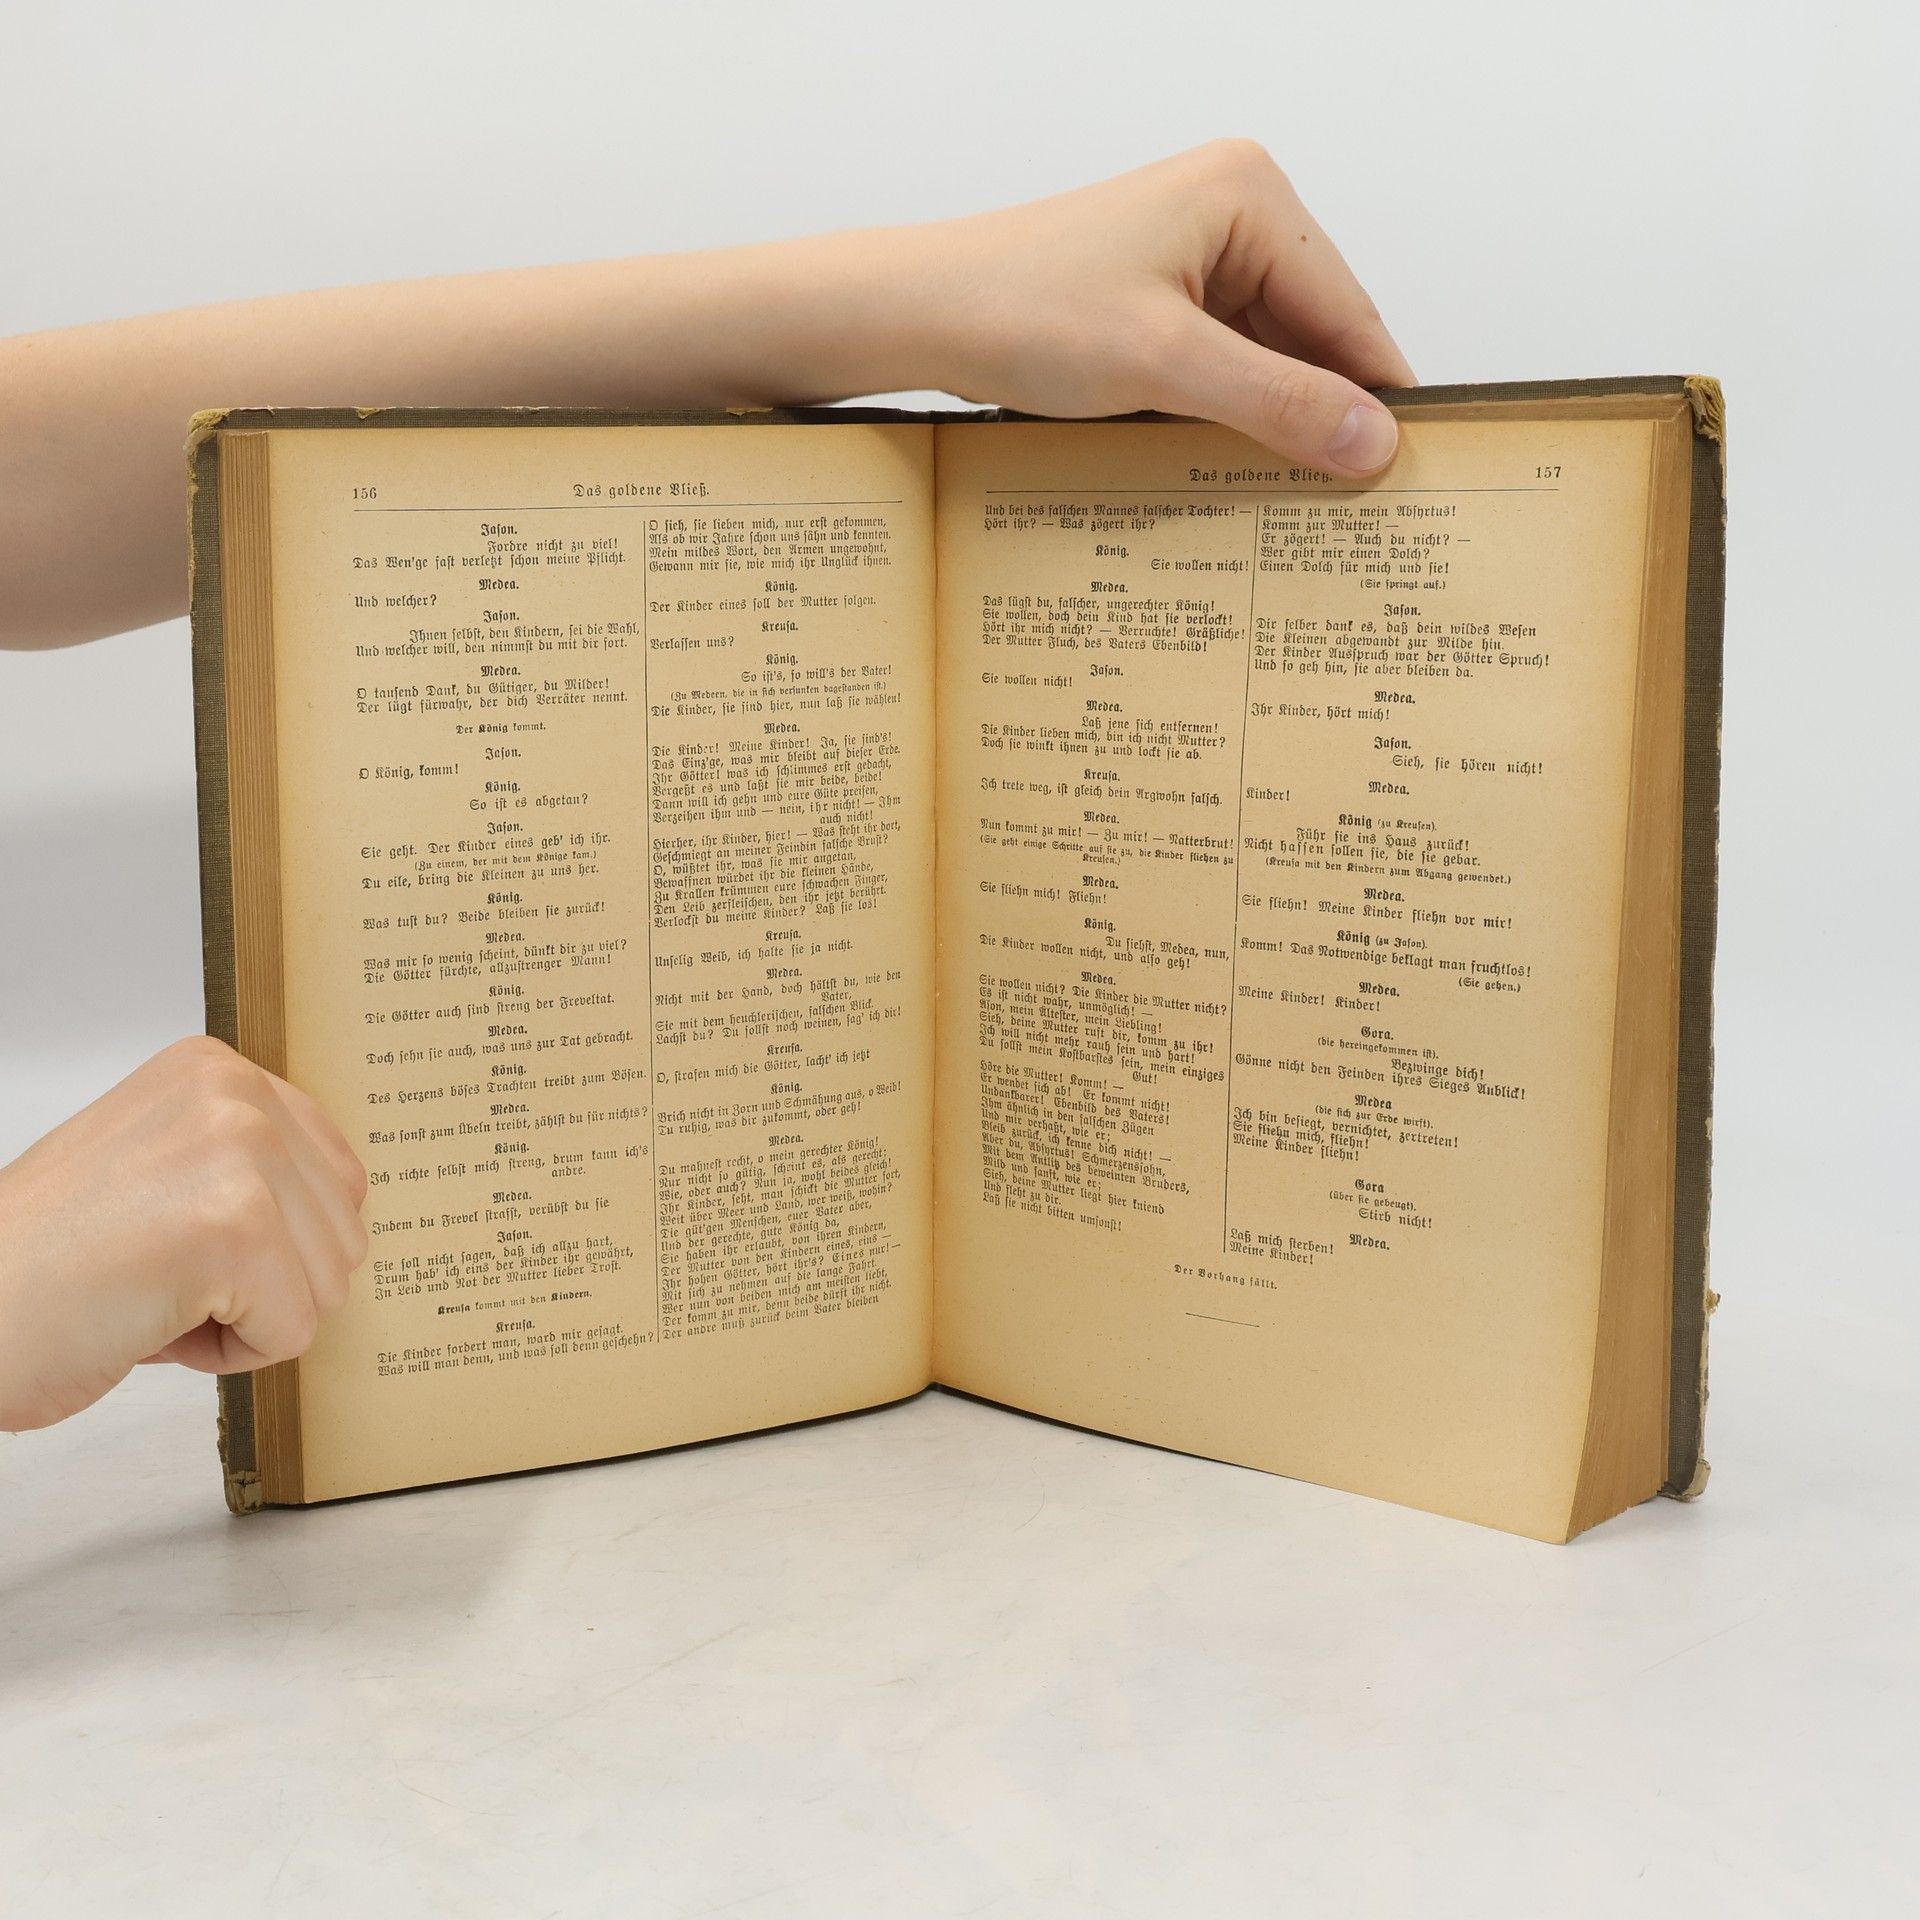 156
Das goldene Vließ.
Jason.
Fordre nicht zu viel!
Das Wen'ge fast verletzt schon meine Pflicht.
Medea.
Und welcher?
Jason.
Ihnen selbst, den Kindern, sei die Wahl,
Und welcher will, den nimmst du mit dir fort.
Medea.
O tausend Dank, du Gütiger, du Milder!
Der lügt fürwahr, der dich Verräter nennt.
Der König kommt.
Jason.
O König, komm!
König.
So ist es abgetan?
Jason.
Sie geht. Der Kinder eines geb' ich ihr.
(Zu einem, der mit dem Könige kam.)
Du eile, bring die Kleinen zu uns her.
König.
Was tust du? Beide bleiben sie zurück!
Medea.
Was mir so wenig scheint, dünkt dir zu viel?
Die Götter fürchte, allzustrenger Mann!
König.
Die Götter auch sind streng der Freveltat.
Medea.
Doch sehn sie auch, was uns zur Tat gebracht.
König.
Des Herzens böses Trachten treibt zum Bösen.
Medea.
Was sonst zum Übeln treibt, zählst du für nichts?
König.
Ich richte selbst mich streng, drum kann ich's
andre.
Medea.
Indem du Frevel strafst, verübst du sie
Jason.
Sie soll nicht sagen, daß ich allzu hart,
Drum hab' ich eins der Kinder ihr gewährt,
In Leid und Not der Mutter lieber Trost.
Kreusa kommt mit den Kindern.
Kreusa.
Die Kinder fordert man, ward mir gesagt.
Was will man denn, und was soll denn geschehn?
O sieh, sie lieben mich, nur erst gekommen,
Als ob wir Jahre schon uns sähn und kennten.
Mein mildes Wort, den Armen ungewohnt,
Gewann mir sie, wie mich ihr Unglück ihnen.
König.
Der Kinder eines soll der Mutter folgen.
Kreusa.
Verlassen uns?
König.
So ist's, so will's der Vater!
(Zu Medeen, die in sich versunken dagestanden ist.)
Die Kinder, sie sind hier, nun laß sie wählen!
Medea.
Die Kinder! Meine Kinder! Ja, sie sind's!
Das Einz'ge, was mir bleibt auf dieser Erde.
Ihr Götter! was ich schlimmes erst gedacht,
Vergeßt es und laßt sie mir beide, beide!
Dann will ich gehn und eure Güte preisen,
Verzeihen ihm und — nein, ihr nicht! — Ihm
auch nicht!
Hierher, ihr Kinder, hier! — Was steht ihr dort,
Geschmiegt an meiner Feindin falsche Brust?
O, wüßtet ihr, was sie mir angetan,
Bewaffnen würdet ihr die kleinen Hände,
Zu Krallen krümmen eure schwachen Finger,
Den Leib zerfleischen, den ihr jetzt berührt.
Verlockst du meine Kinder? Laß sie los!
Kreusa.
Unselig Weib, ich halte sie ja nicht.
Medea.
Nicht mit der Hand, doch hältst du, wie den
Vater,
Sie mit dem heuchlerischen, falschen Blick.
Lachst du? Du sollst noch weinen, sag' ich dir!
Kreusa.
O, strafen mich die Götter, lacht' ich jetzt
König.
Brich nicht in Zorn und Schmähung aus, o Weib!
Tu ruhig, was dir zukommt, oder geh!
Medea.
Du mahnest recht, o mein gerechter König!
Nur nicht so gütig, scheint es, als gerecht;
Wie, oder auch? Nun ja, wohl beides gleich!
Ihr Kinder, seht, man schickt die Mutter fort,
Weit über Meer und Land, wer weiß, wohin?
Die güt'gen Menschen, euer Vater aber,
Und der gerechte, gute König da,
Sie haben ihr erlaubt, von ihren Kindern,
Der Mutter von den Kindern eines, eins —
Ihr hohen Götter, hört ihr's? Eines nur! —
Mit sich zu nehmen auf die lange Fahrt.
Wer nun von beiden mich am meisten liebt,
Der komm zu mir, denn beide dürft ihr nicht.
Der andre muß zurück beim Vater bleiben
Das goldene Vließ.
157
Und bei des falschen Mannes falscher Tochter! —
Hört ihr? — Was zögert ihr?
König.
Sie wollen nicht!
Medea.
Das lügst du, falscher, ungerechter König!
Sie wollen, doch dein Kind hat sie verlockt!
Hört ihr mich nicht? — Verruchte! Gräßliche!
Der Mutter Fluch, des Vaters Ebenbild!
Jason.
Sie wollen nicht!
Medea.
Laß jene sich entfernen!
Die Kinder lieben mich, bin ich nicht Mutter?
Doch sie winkt ihnen zu und lockt sie ab.
Kreusa.
Ich trete weg, ist gleich dein Argwohn falsch.
Medea.
Nun kommt zu mir! — Zu mir! — Natterbrut!
(Sie geht einige Schritte auf sie zu, die Kinder fliehen zu
Kreusen.)
Medea.
Sie fliehn mich! Fliehn!
König.
Du siehst, Medea, nun,
Die Kinder wollen nicht, und also geh!
Medea.
Sie wollen nicht? Die Kinder die Mutter nicht?
Es ist nicht wahr, unmöglich! —
Äson, mein Ältester, mein Liebling!
Sieh, deine Mutter ruft dir, komm zu ihr!
Ich will nicht mehr rauh sein und hart!
Du sollst mein Kostbarstes sein, mein einziges
Gut!
Höre die Mutter! Komm! —
Er wendet sich ab! Er kommt nicht!
Undankbarer! Ebenbild des Vaters!
Ihm ähnlich in den falschen Zügen
Und mir verhaßt, wie er;
Bleib zurück, ich kenne dich nicht! —
Aber du, Absyrtus! Schmerzenssohn,
Mit dem Antlitz des beweinten Bruders,
Mild und sanft, wie er;
Sieh, deine Mutter liegt hier kniend
Und fleht zu dir.
Laß sie nicht bitten umsonst!
Komm zu mir, mein Absyrtus!
Komm zur Mutter! —
Er zögert! — Auch du nicht? —
Wer gibt mir einen Dolch?
Einen Dolch für mich und sie!
(Sie springt auf.)
Jason.
Dir selber dank es, daß dein wildes Wesen
Die Kleinen abgewandt zur Milde hin.
Der Kinder Ausspruch war der Götter Spruch!
Und so geh hin, sie aber bleiben da.
Medea.
Ihr Kinder, hört mich!
Jason.
Sieh, sie hören nicht!
Medea.
Kinder!
König (zu Kreusen).
Führ sie ins Haus zurück!
Nicht hassen sollen sie, die sie gebar.
(Kreusa mit den Kindern zum Abgang gewendet.)
Medea.
Sie fliehn! Meine Kinder fliehn vor mir!
König (zu Jason).
Komm! Das Notwendige beklagt man fruchtlos!
(Sie gehen.)
Medea.
Meine Kinder! Kinder!
Gora.
(die hereingekommen ist).
Bezwinge dich!
Gönne nicht den Feinden ihres Sieges Anblick!
Medea
(die sich zur Erde wirft).
Ich bin besiegt, vernichtet, zertreten!
Sie fliehn mich, fliehn!
Meine Kinder fliehn!
Gora
(über sie gebeugt).
Stirb nicht!
Medea.
Laß mich sterben!
Meine Kinder!
Der Vorhang fällt.